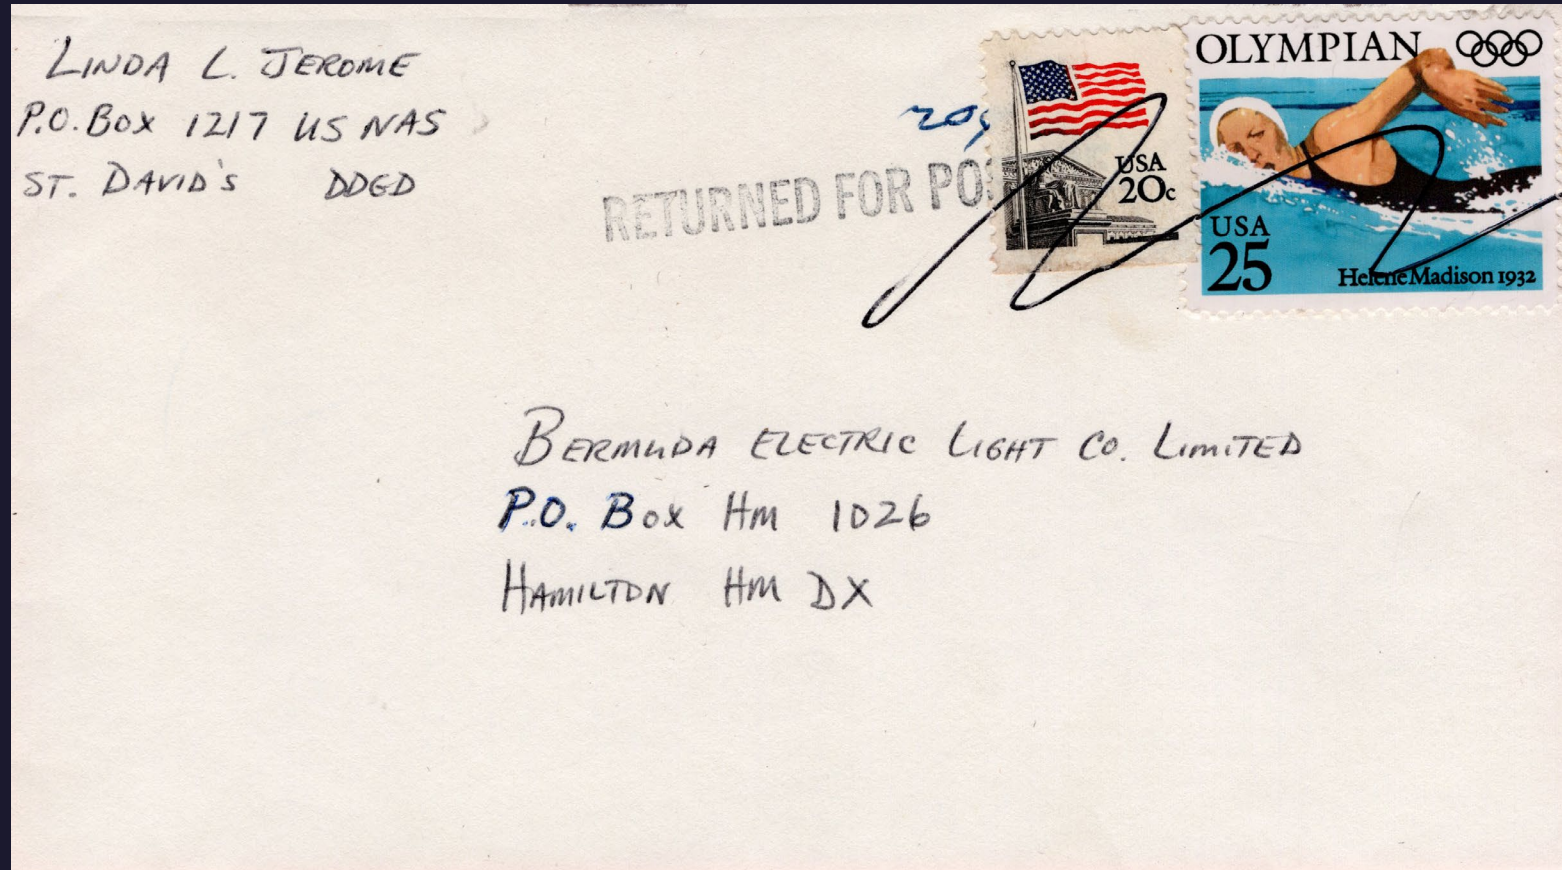 LINDA L. JEROME
P.O. BOX 1217 US NAS
ST. DAVID'S DDGD
20¢
RETURNED FOR POS
USA
20c
OLYMPIAN
USA
25
Helene Madison 1932
BERMUDA ELECTRIC LIGHT CO. LIMITED
P.O. BOX HM 1026
HAMILTON HM DX